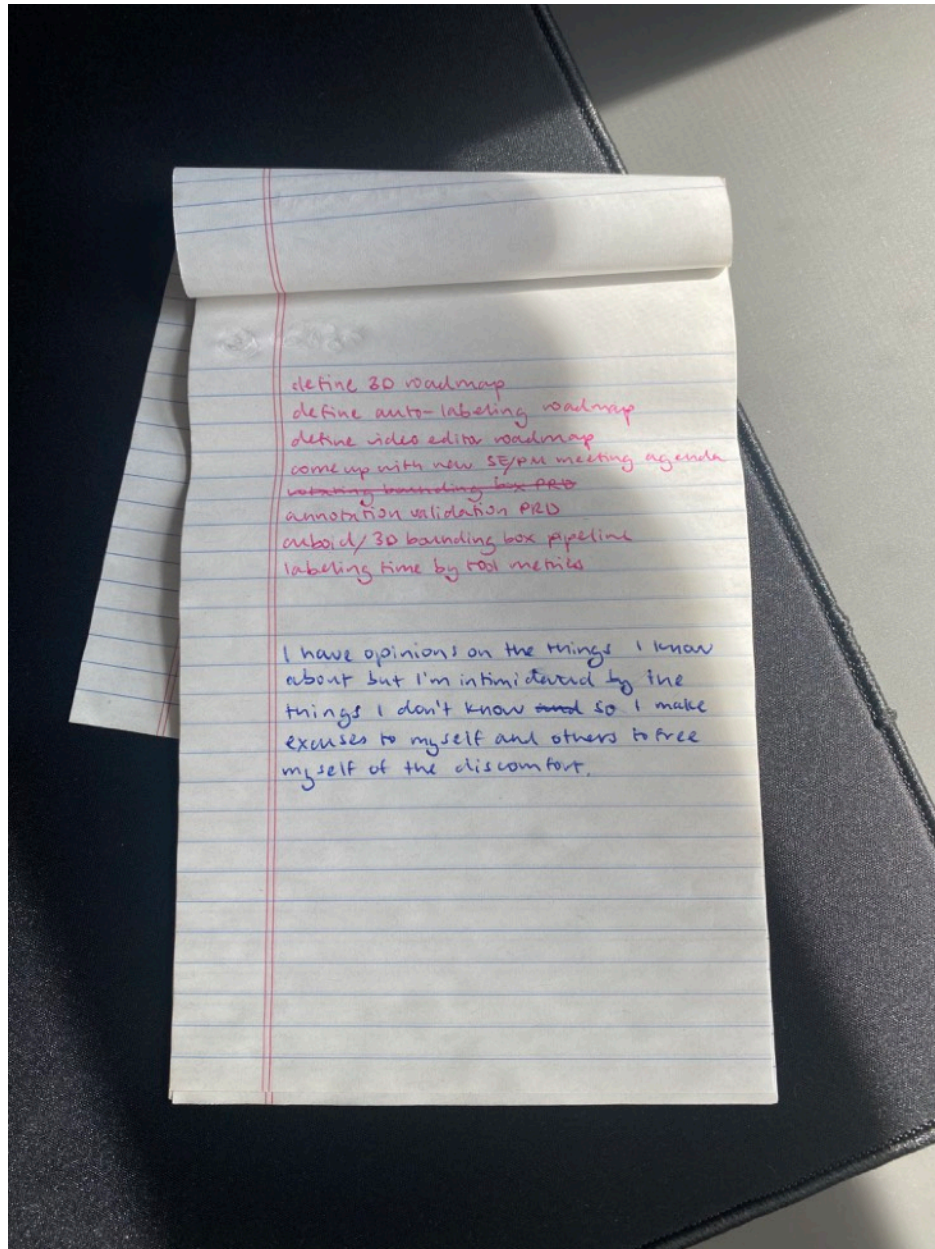 define 3D roadmap
define auto-labeling roadmap
define video editor roadmap
come up with new SE/PM meeting agenda
rotating bounding box PRD
annotation validation PRD
cuboid/3D bounding box pipeline
labeling time by tool metrics
I have opinions on the things I know
about but I'm intimidated by the
things I don't know and so I make
excuses to myself and others to free
myself of the discomfort.